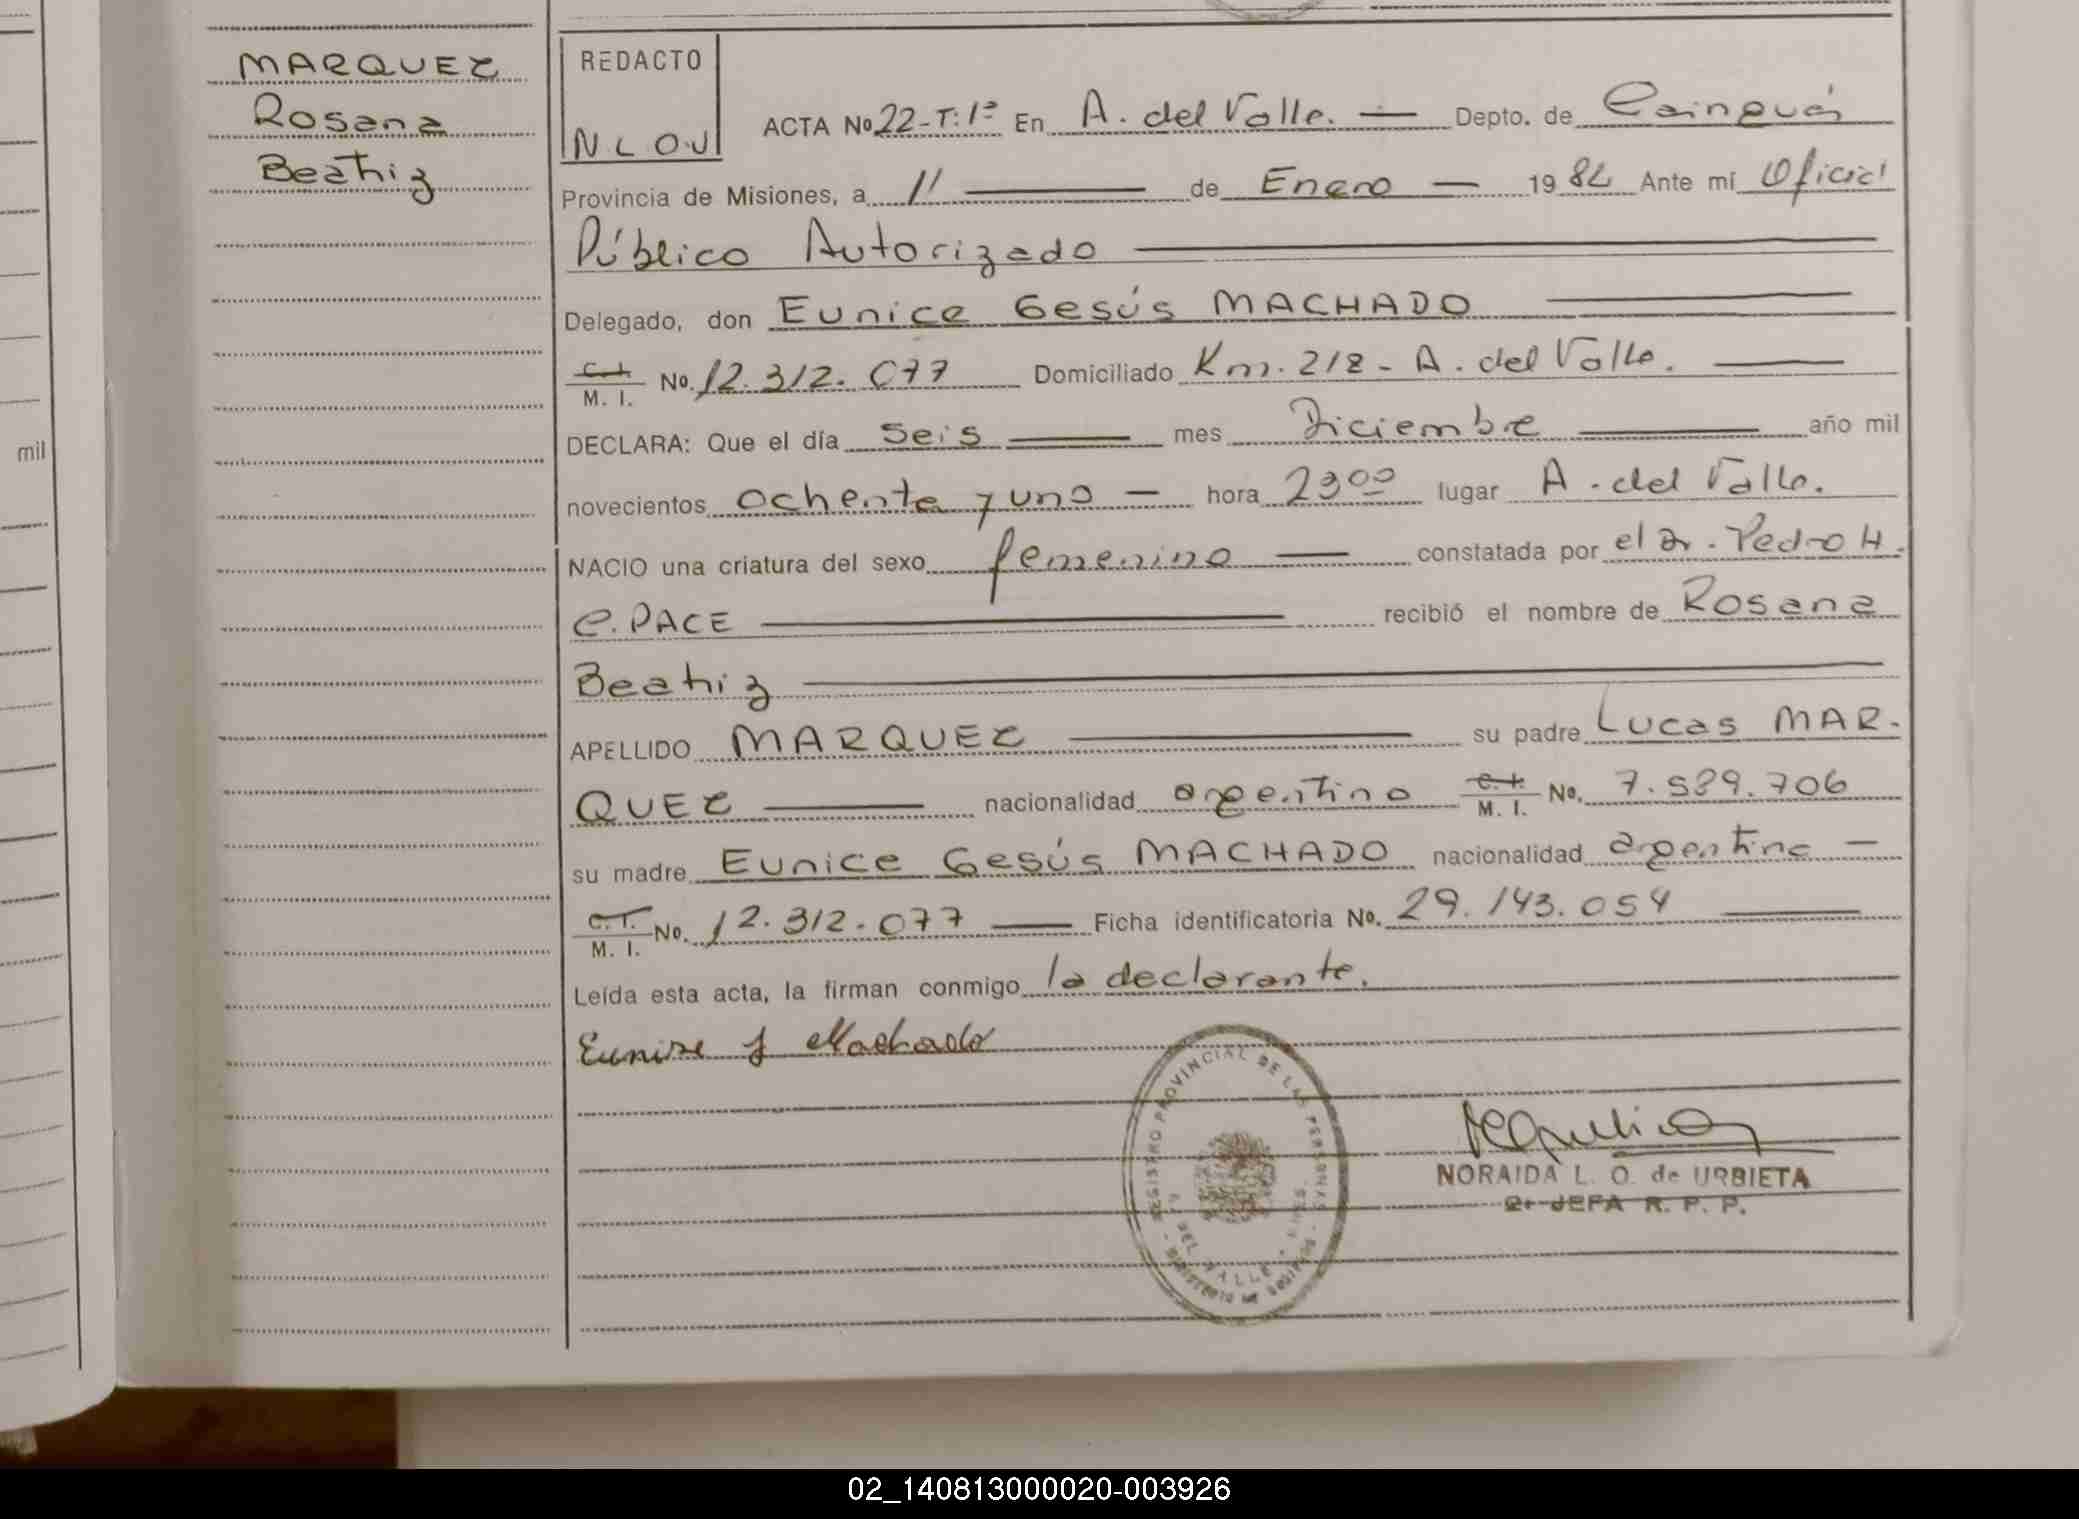 MARQUEZ
Rosana
Beatriz
mil
REDACTO
N L O U
ACTA No 22-T: 1º En A. del Valle. — Depto. de Cainguás
Provincia de Misiones, a 11 — de Enero — 19 82 Ante mí Oficial
Público Autorizado —
Delegado, don Eunice Gesús MACHADO —
C. I.
M. I. No. 12.312.077 Domiciliado Km. 218 - A. del Valle. —
DECLARA: Que el día seis — mes Diciembre — año mil
novecientos ochenta y uno — hora 23 00 lugar A. del Valle.
NACIO una criatura del sexo femenino — constatada por el Dr. Pedro H.
C. PACE — recibió el nombre de Rosana
Beatriz —
APELLIDO MARQUEZ — su padre Lucas MAR-
QUEZ — nacionalidad argentino C. I.
M. I. No. 7.589.706
su madre Eunice Gesús MACHADO nacionalidad argentina —
C. I.
M. I. No. 12.312.077 — Ficha identificatoria No. 29.143.054 —
Leída esta acta, la firman conmigo la declarante.
Eunice J Machado
REGISTRO PROVINCIAL DE LAS PERSONAS
DEL VALLE
NORAIDA L. O. de URBIETA
JEFA R. P. P.
02_140813000020-003926